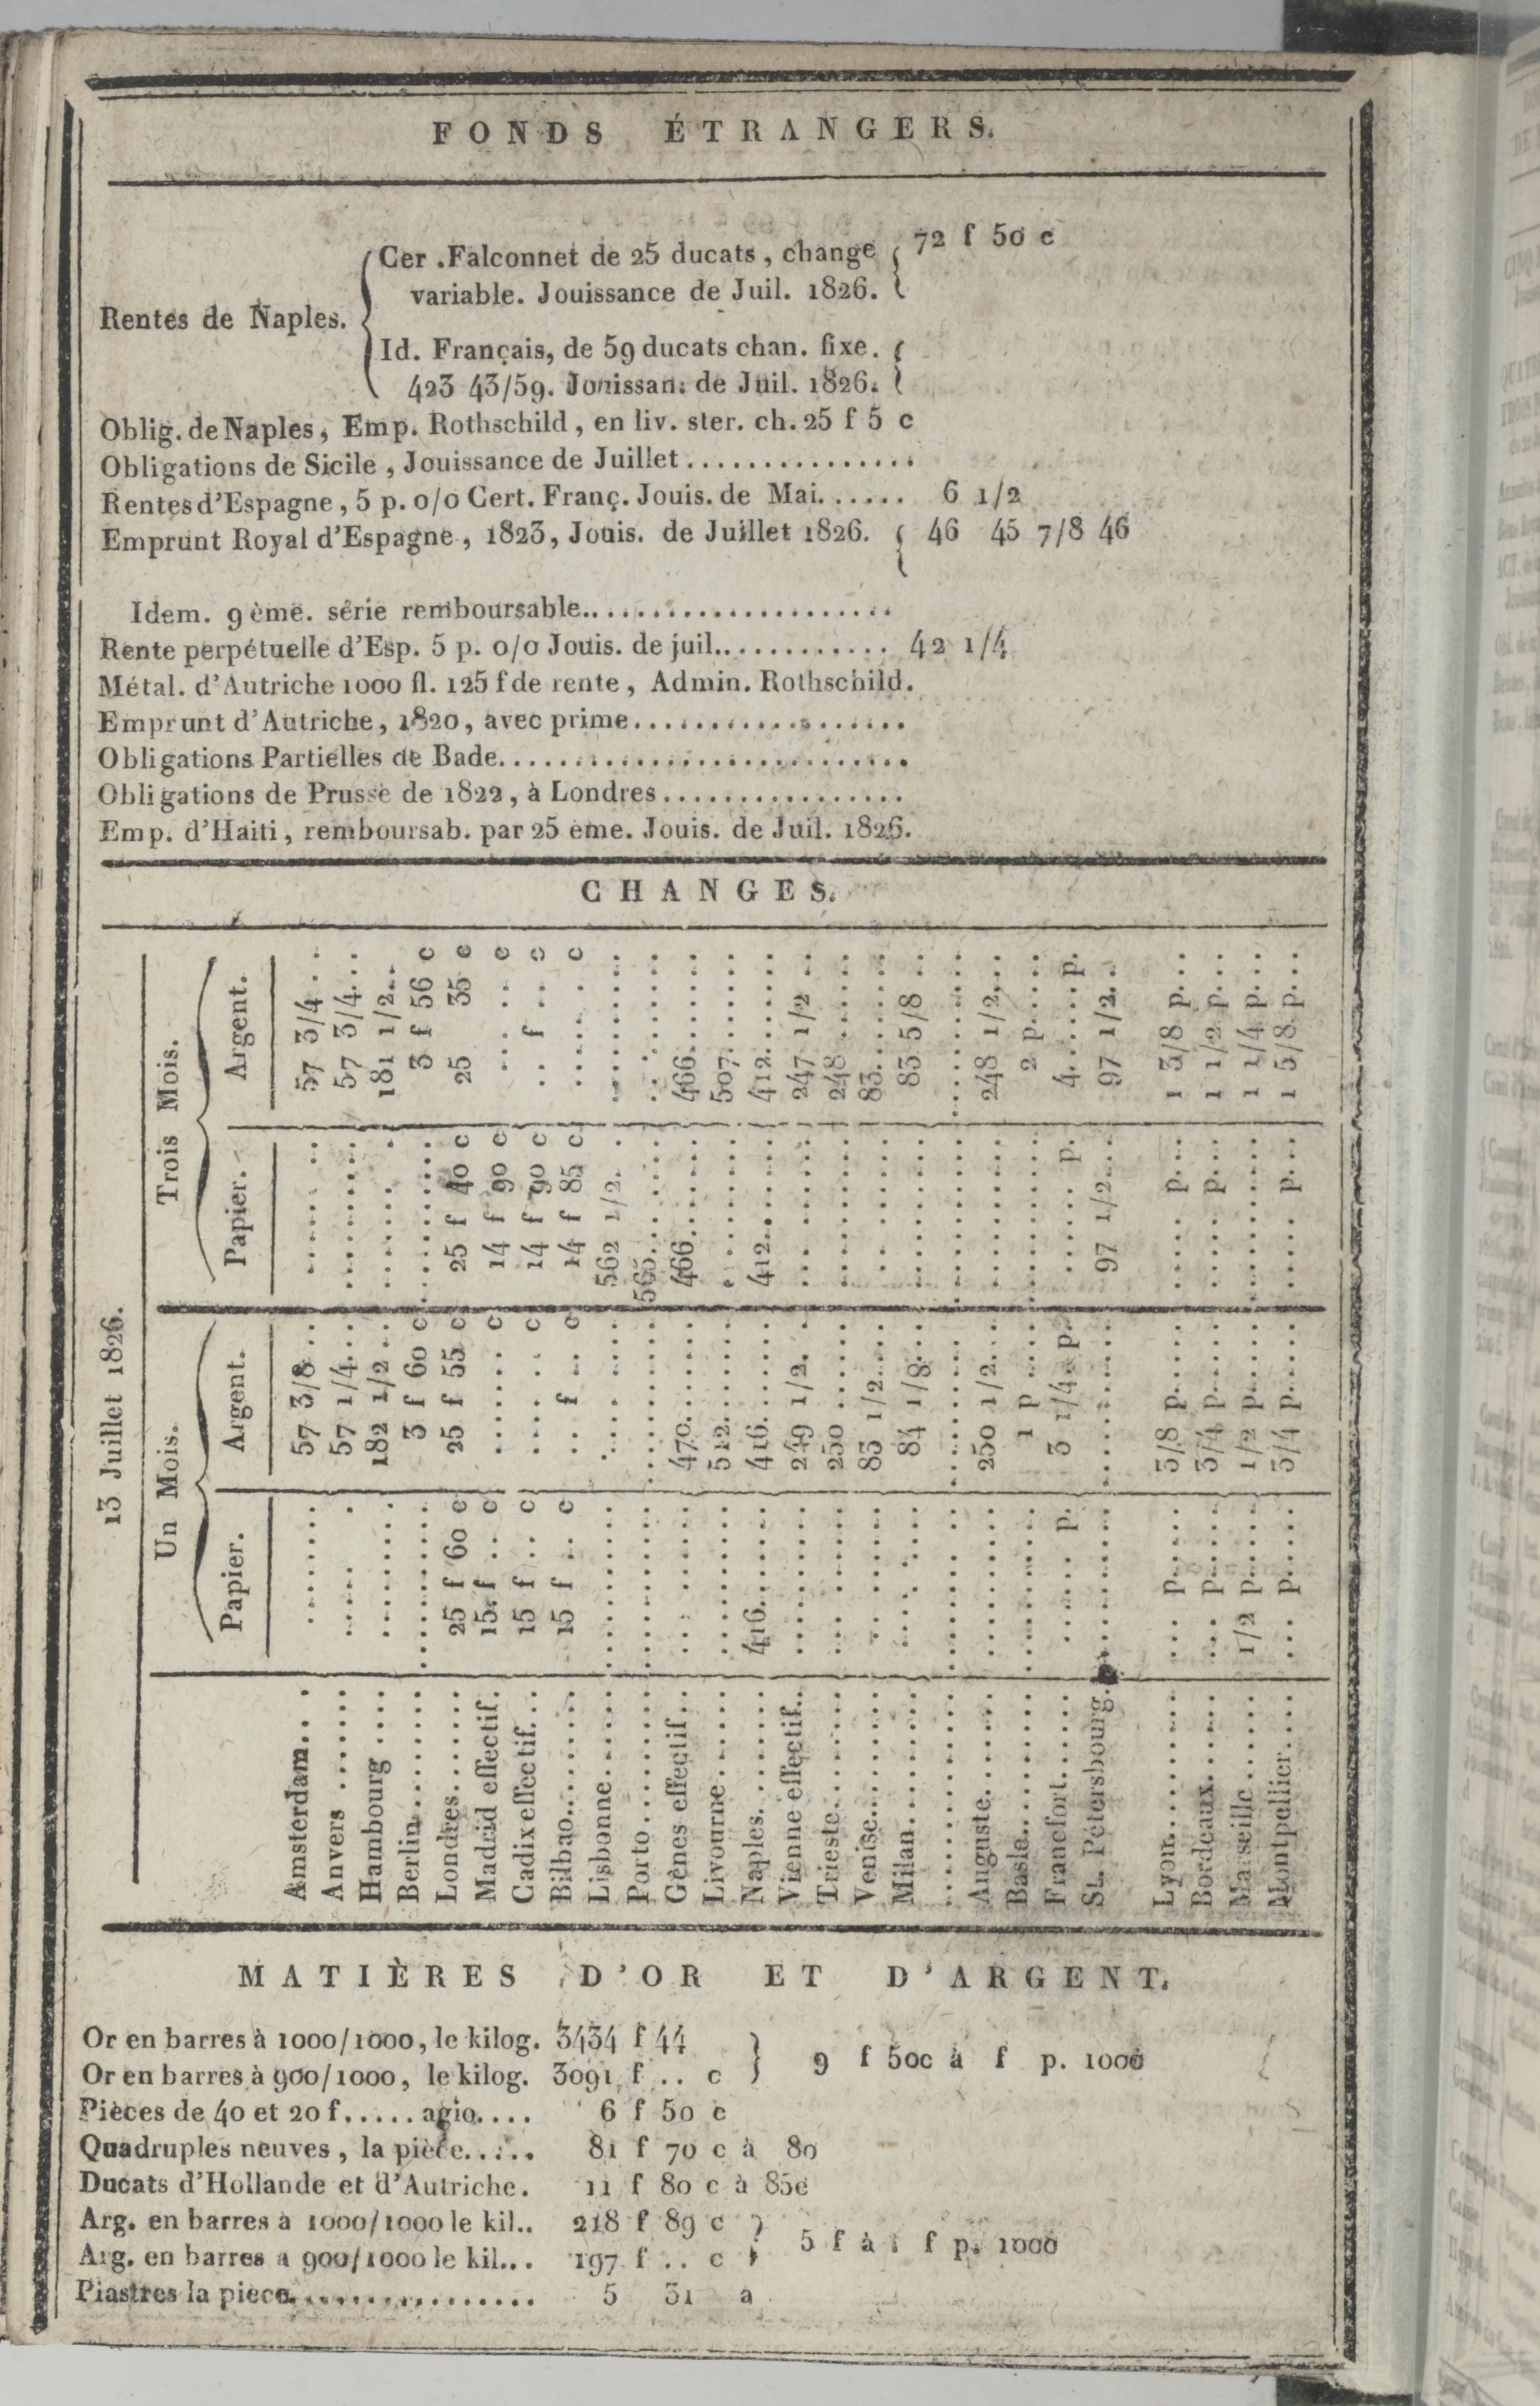 FONDS ÉTRANGERS.
Rentes de Naples.
Cer .Falconnet de 25 ducats, change 72 f 50 c
variable. Jouissance de Juil. 1826.
Id. Français, de 59 ducats chan. fixe.
423 43/59. Jouissan. de Juil. 1826.
Oblig. de Naples, Emp. Rothschild, en liv. ster. ch. 25 f 5 c
Obligations de Sicile, Jouissance de Juillet...............
Rentes d'Espagne, 5 p. o/o Cert. Franç. Jouis. de Mai...... 6 1/2
Emprunt Royal d'Espagne, 1823, Jouis. de Juillet 1826. 46 45 7/8 46
Idem. 9ème. série remboursable.....................
Rente perpétuelle d'Esp. 5 p. o/o Jouis. de juil............ 42 1/4
Métal. d'Autriche 1000 fl. 125 f de rente, Admin. Rothschild.
Emprunt d'Autriche, 1820, avec prime..................
Obligations Partielles de Bade...........................
Obligations de Prusse de 1822, à Londres................
Emp. d'Haiti, remboursab. par 25 eme. Jouis. de Juil. 1826.
CHANGES.
13 Juillet 1826.
Un Mois. Trois Mois.
Papier. Argent. Papier. Argent.
Amsterdam... ........ 57 3/8... ........ 57 3/4...
Anvers ...... ...... 57 1/4... ........ 57 3/4...
Hambourg .... ........ 182 1/2.. ...... 181 1/2...
Berlin........ ........ 3 f 60 c ........ 3 f 56 c
Londres....... 25 f 60 c 25 f 55 c 25 f 40 c 25 35 c
Madrid effectif. 15 f .. c ...... c 14 f 90 c ... .. c
Cadix effectif... 15 f .. c .... .. c 14 f 90 c .. f .. c
Bilbao........ 15 f .. c .. f .. c 14 f 85 c .... .. c
Lisbonne...... ........ ...... 562 1/2. ........
Porto......... ........ ........ 565...... ........
Gènes effectif.. ........ 470...... 466...... 466......
Livourne...... ........ 512...... ........ 507......
Naples........ 416...... 416...... 412...... 412......
Vienne effectif.. ........ 249 1/2. ........ 247 1/2 ..
Trieste........ ........ 250 ...... ........ 248 ......
Venise........ ........ 83 1/2.... ........ 83......
Milan......... ........ 84 1/8... ........ 83 5/8 ..
........ ........ ........ ........ ........
Auguste....... ........ 250 1/2... ........ 248 1/2...
Basle......... ........ 1 p .... ........ 2 p....
Francfort...... ...... p. 3 1/4. p. ..... p. 4...... p.
St. Pétersbourg. ........ ........ 97 1/2.... 97 1/2..
Lyon......... ... p..... 3/8 p..... ..... p... 1 3/8 p...
Bordeaux...... ... p..... 3/4 p..... ..... p... 1 1/2 p...
Marseille ...... 1/2 p..... 1/2 p..... ........ 1 1/4 p...
Montpellier.... ... p..... 3/4 p..... ..... p... 1 5/8 p...
MATIÈRES D'OR ET D'ARGENT.
Or en barres à 1000/1000, le kilog. 3434 f 44
9 f 50c à f p. 1000
Or en barres à 900/1000, le kilog. 3091 f .. c
Pièces de 40 et 20 f..... agio.... 6 f 50 c
Quadruples neuves, la pièce..... 81 f 70 c à 80
Ducats d'Hollande et d'Autriche. 11 f 80 c à 85c
Arg. en barres à 1000/1000 le kil.. 218 f 89 c
5 f à f p. 1000
Arg. en barres a 900/1000 le kil... 197 f .. c
Piastres la piece................. 5 31 a